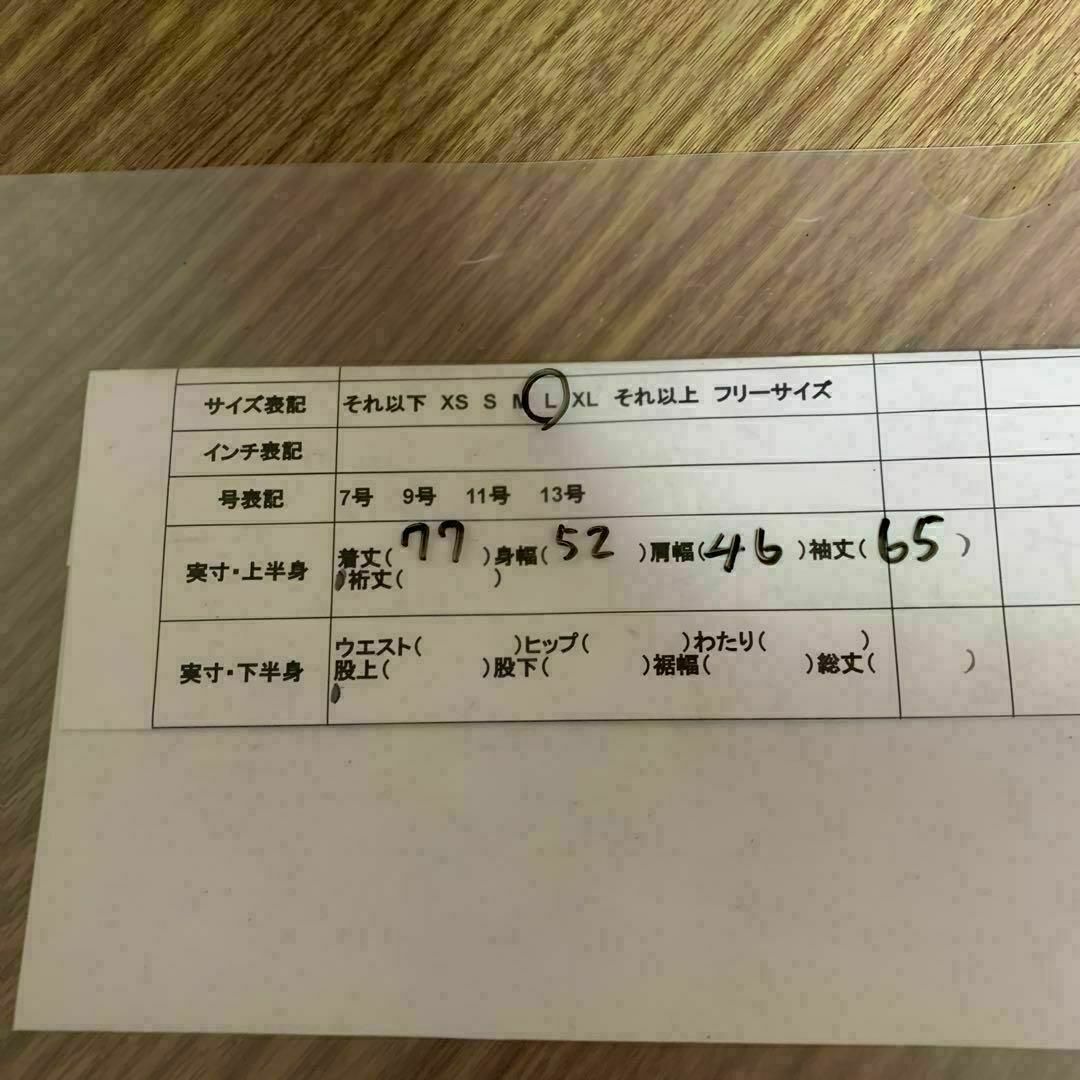 サイズ表記 それ以下 XS S M L XL それ以上 フリーサイズ
インチ表記
号表記 7号 9号 11号 13号
実寸・上半身 着丈( 77 )身幅( 52 )肩幅( 46 )袖丈( 65 )
裄丈( )
実寸・下半身 ウエスト( )ヒップ( )わたり( )
股上( )股下( )裾幅( )総丈( )